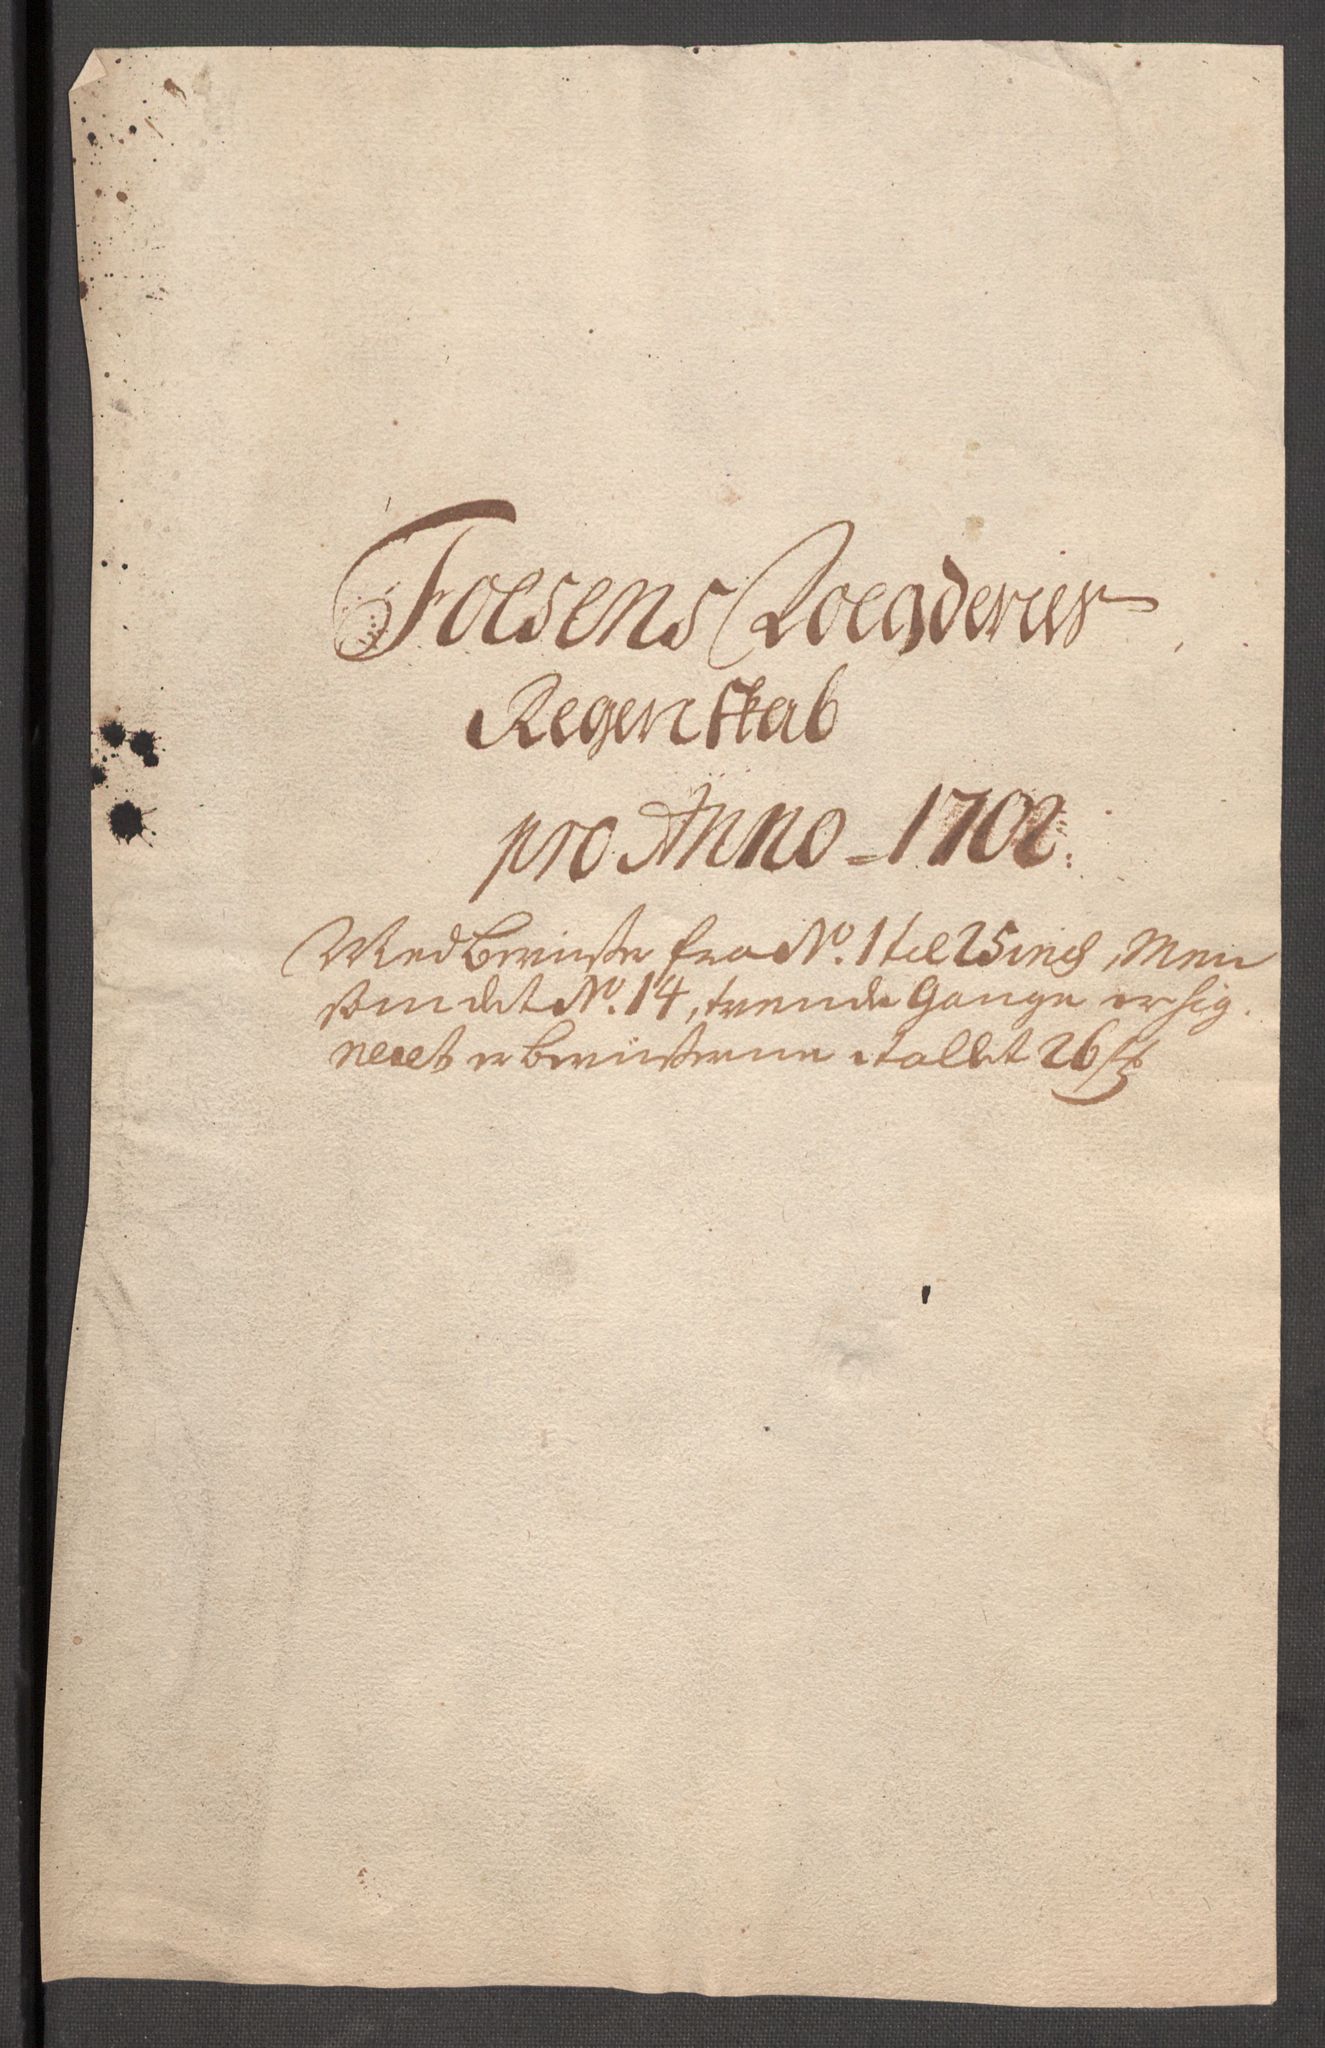 Foesens Voegderies
Regenskab
pro Anno 1702.
Med beviiser fra No. 1 til 25 incl, Men
som det No. 14, tvende Gange er sig-
neret er beviiserne i tallet 26 st